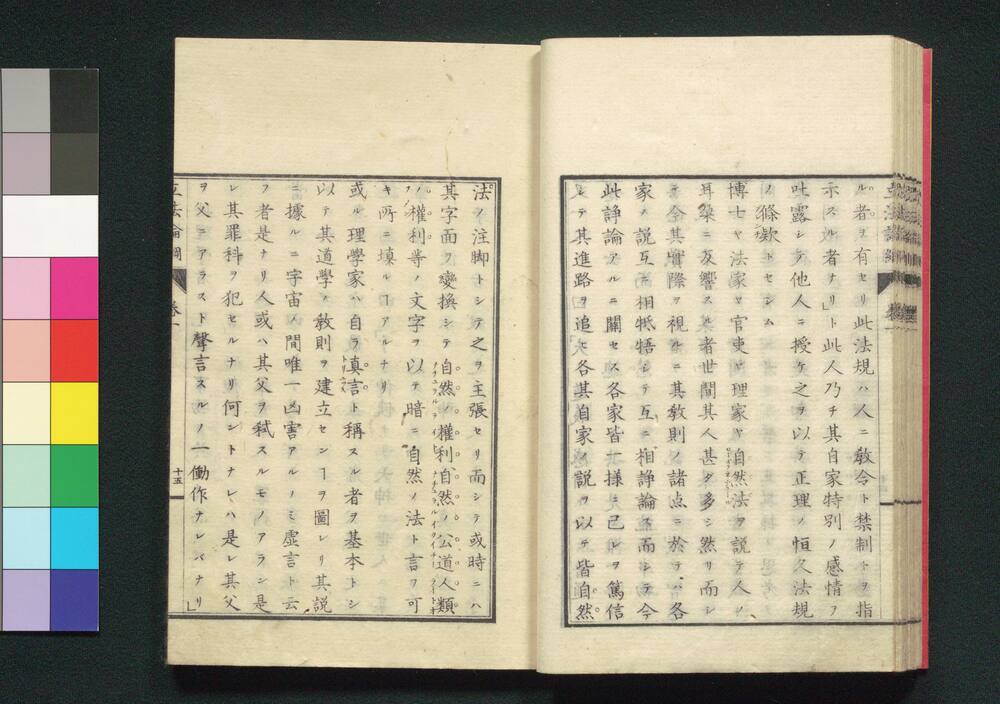 ル者ヲ有セリ此法規ハ人ニ教令ト禁制トヲ指
示スル者ナリ」ト此人乃チ其自家特別ノ感情ヲ
吐露シテ他人ニ授ケ之ヲ以テ正理ノ恒久法規
ノ條欵トセシム
博士ヤ法家ヤ官吏ヤ理家ヤ自然法ヲ説テ人ノ
耳朶ニ反響スル者世間其人甚タ多シ然リ而シ
テ今其實際ヲ視ルニ其教則ノ諸点ニ於テハ各
家ノ説互ニ相牴牾シテ互ニ相諍論ス而シテ今
此諍論アルニ關セス各家皆一様ニ己レヲ篤信
シテ其進路ヲ追セ各其自家ノ説ヲ以テ皆自然
法ノ注脚トシテ之ヲ主張セリ而シテ或時ニハ
其字面ヲ變換シテ自然ノ權利自然ノ公道人類
ノ權利等ノ文字ヲ以テ暗ニ自然ノ法ト言フ可
キ所ニ塡ルヿアルナリ
或ル理學家ハ自ラ真言ト稱スル者ヲ基本トシ
以テ其道學ノ教則ヲ建立センヿヲ圖レリ其説
ニ據ルニ宇宙ノ間唯一ノ凶害アルノミ虚言ト云
フ者是ナリ人或ハ其父ヲ弑スルモノアラン是
レ其罪科ヲ犯セルナリ何ントナレハ是レ其父
ヲ父ニアラスト聲言スルノ一働作ナレバナリ」
立法論綱 卷一 十五